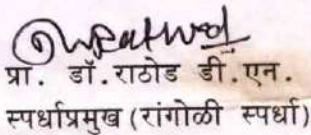 प्रा. डॉ. राठोड डी.एन.
स्पर्धाप्रमुख (रांगोळी स्पर्धा)